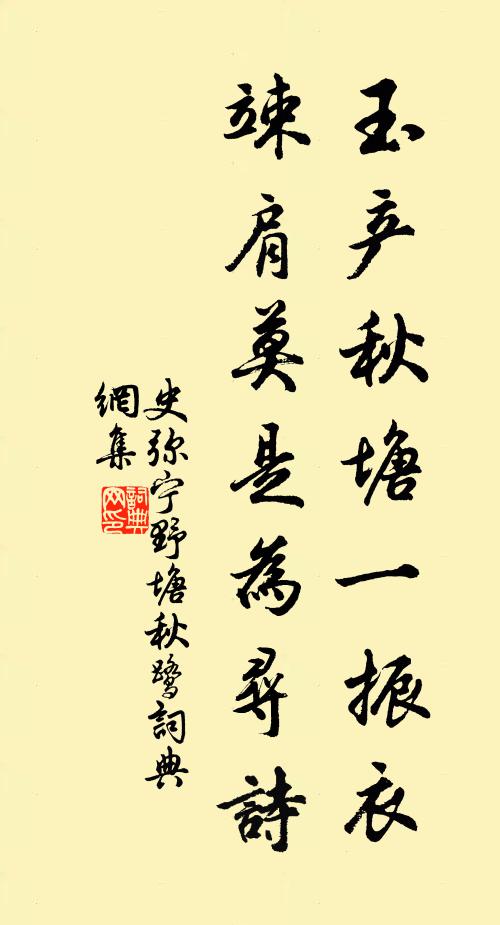 玉立秋塘一振衣
竦肩莫是為尋詩
史弥宁野塘秋鹭詞典
網集
詞典
网印